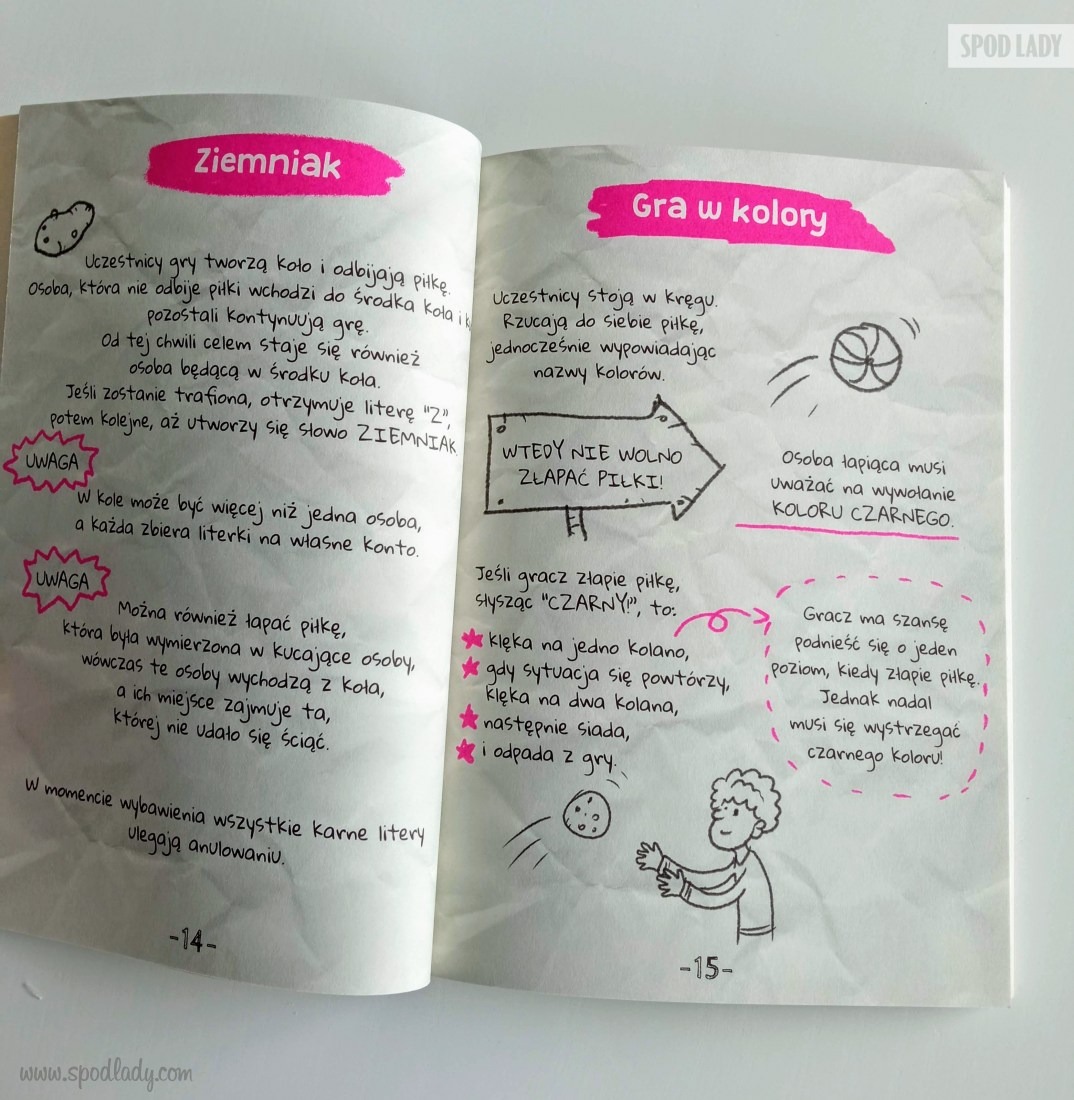 SPOD LADY
Ziemniak
Uczestnicy gry tworzą koło i odbijają piłkę.
Osoba, która nie odbije piłki wchodzi do środka koła i
pozostali kontynuują grę.
Od tej chwili celem staje się również
osoba będącą w środku koła.
Jeśli zostanie trafiona, otrzymuje literę "Z",
potem kolejne, aż utworzy się słowo ZIEMNIAK.
UWAGA
W kole może być więcej niż jedna osoba,
a każda zbiera literki na własne konto.
UWAGA
Można również łapać piłkę,
która była wymierzona w kucające osoby,
wówczas te osoby wychodzą z koła,
a ich miejsce zajmuje ta,
której nie udało się ściąć.
W momencie wybawienia wszystkie karne litery
ulegają anulowaniu.
-14-
Gra w kolory
Uczestnicy stoją w kręgu.
Rzucają do siebie piłkę,
jednocześnie wypowiadając
nazwy kolorów.
Osoba łapiąca musi
uważać na wywołanie
KOLORU CZARNEGO.
WTEDY NIE WOLNO
ZŁAPAĆ PIŁKI!
Jeśli gracz złapie piłkę,
słysząc "CZARNY!", to:
klęka na jedno kolano,
gdy sytuacja się powtórzy,
klęka na dwa kolana,
następnie siada,
i odpada z gry.
Gracz ma szansę
podnieść się o jeden
poziom, kiedy złapie piłkę.
Jednak nadal
musi się wystrzegać
czarnego koloru!
-15-
www.spodlady.com